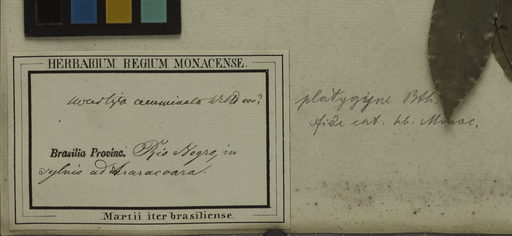 HERBARIUM REGIUM MONACENSE.
acuminata var?
Brasilia Provinc. Rio Negro, in
sylvis ad Araracoara.
Martii iter brasiliense.
platygyne Bth.
fide cat. hb. Monac.